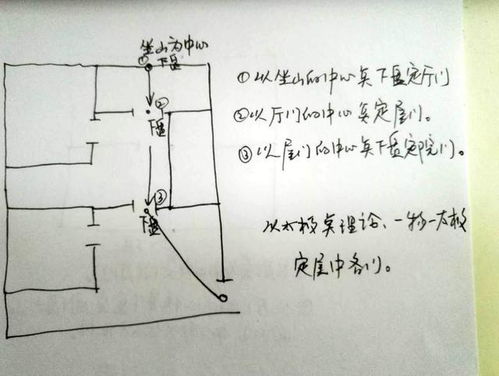 坐山为中心
①下盘
②
下盘
③
下盘
①以坐山的中心奌下盘定厅门
②以厅门的中心奌定屋门。
③以屋门的中心奌下盘定院门。
以太极奌理论、一物一太极
定屋中各门。